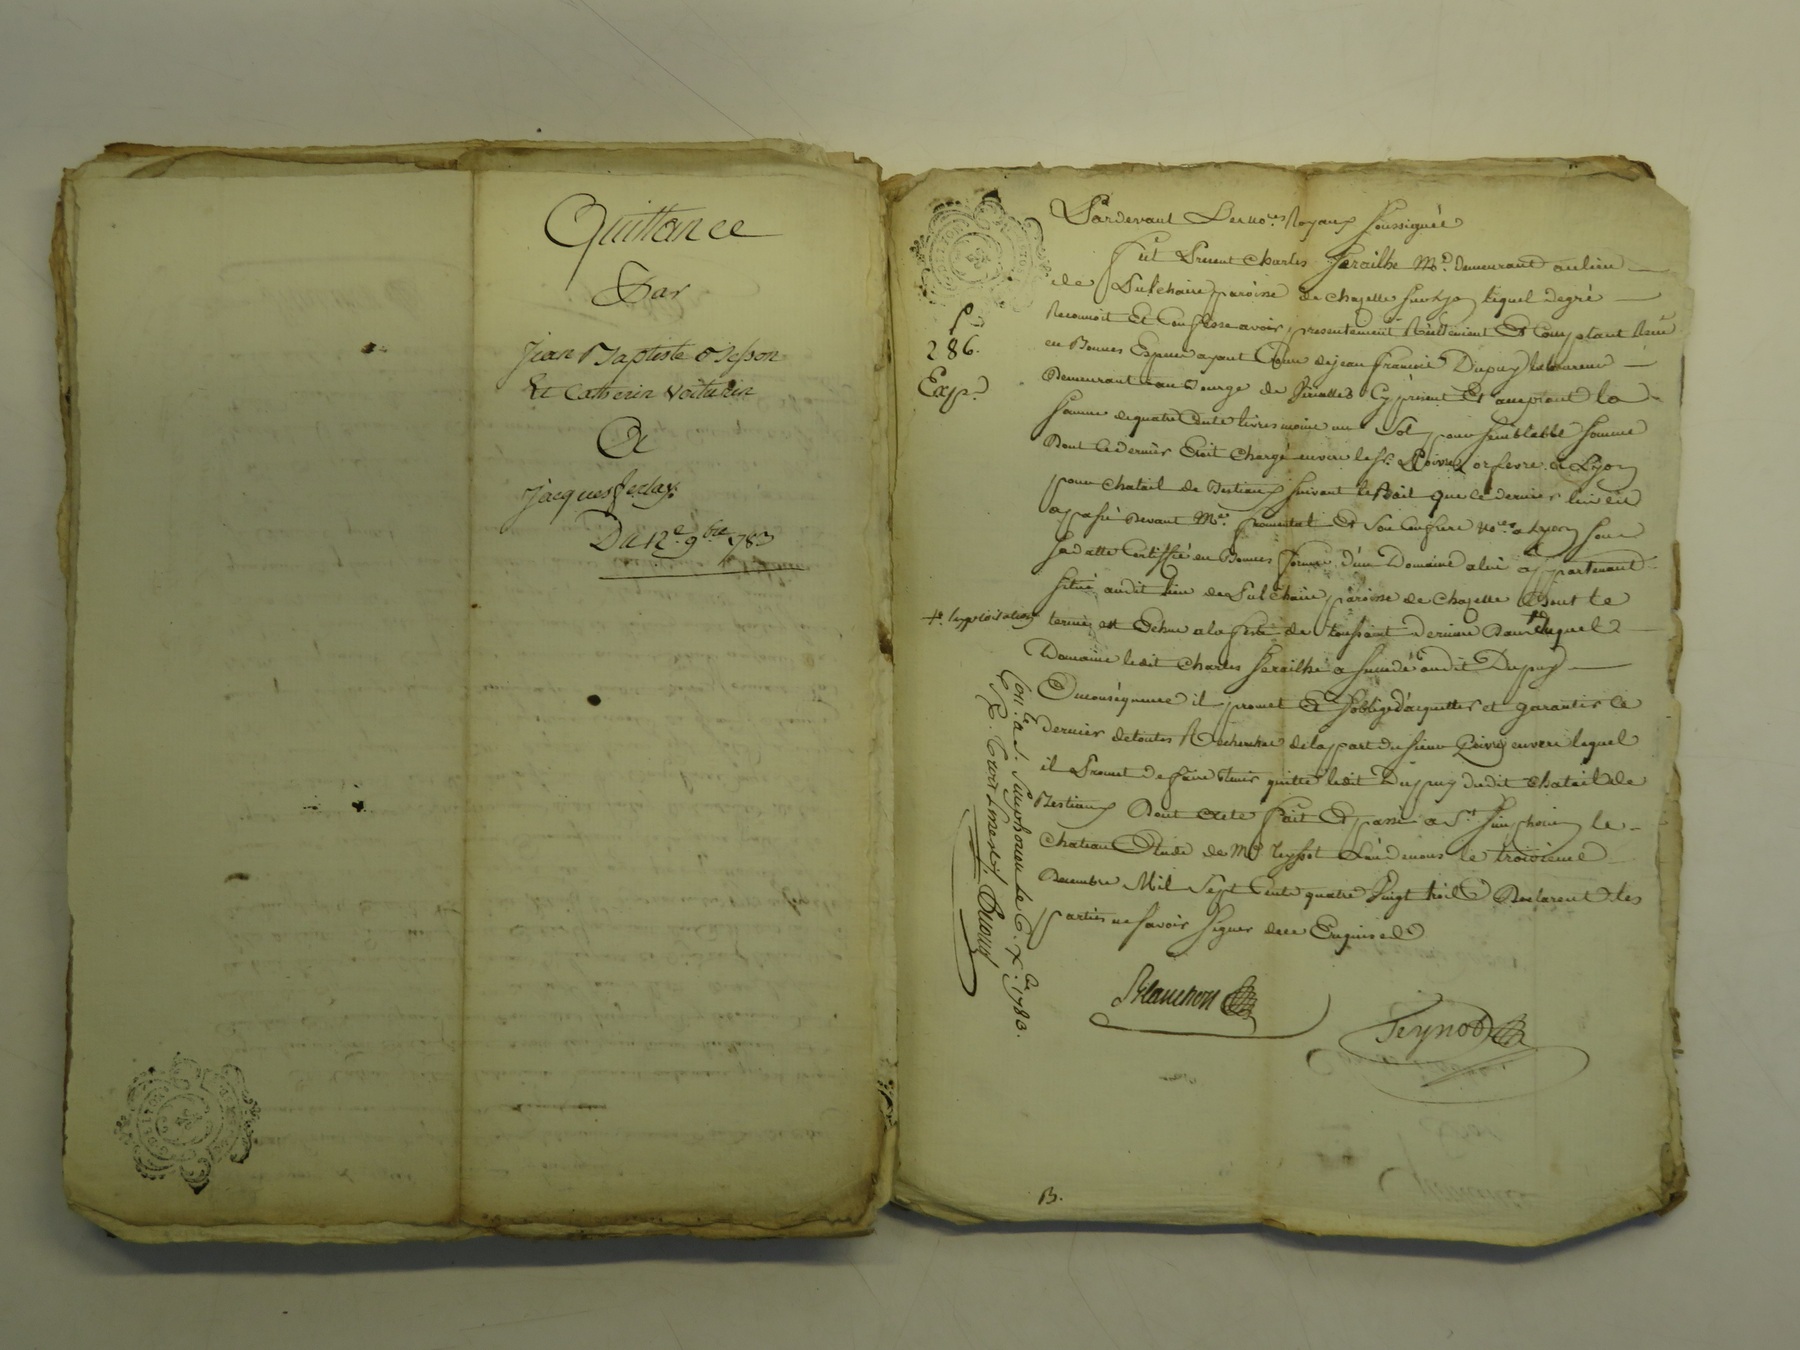 Quittance
Par
Jean Baptiste
Et Catherin Voiturin
A
Jacques
Du 12e 9bre 1783
Pardevant Les nores Royaux Soussignés
fut Present Charles Ferailhe Md. demeurant au lieu
de paroisse de Chazelle sur Lyon lequel degré
Reconnoit Et Confesse avoir presentement Réellement Et Comptant Reçu
en Bonnes Especes ayant Cours de jean francois Dupuy laboureur
Demeurant au Bourg de Cy présent Et acceptant la
Somme de quatre Cents livres moins un Sol pour semblable Somme
Dont Ce dernier Etoit Chargé envers le Sr. Poivre orfevre a Lyon
pour Chatail de Bestiaux suivant le Bail que Ce dernier lui en
a passé devant Me. Et Son Confrere nores a Lyon sous
Sa datte Certiffié en Bonnes formes d'un Domaine a lui appartenant
Situé audit lieu de paroisse de Chazelle dont le
terme est Echu a la fete de toussaint derniere Dans lequel
+ l'exploitation
Domaine ledit Charles Ferailhe a succédé audit Dupuy
En Conséquence il promet Et s'oblige d'acquitter et garantir Ce
dernier de toutes Recherches de la part du Sieur Poivre envers lequel
il Promet de faire tenir quitte ledit Dupuy dudit Chatail de
Bestiaux Dont acte fait Et passé a St. Simphorien le
Chateau Etude de Me L'un de nous le troisieme
Decembre Mil Sept Cents quatre Vingt trois Declarent les
parties ne Savoir Signer de ce Enquises
286.
Exp.
Con.lé a S. Simphorien le 6. Xbre 1783.
R.
Blanchon
Teynod
B.